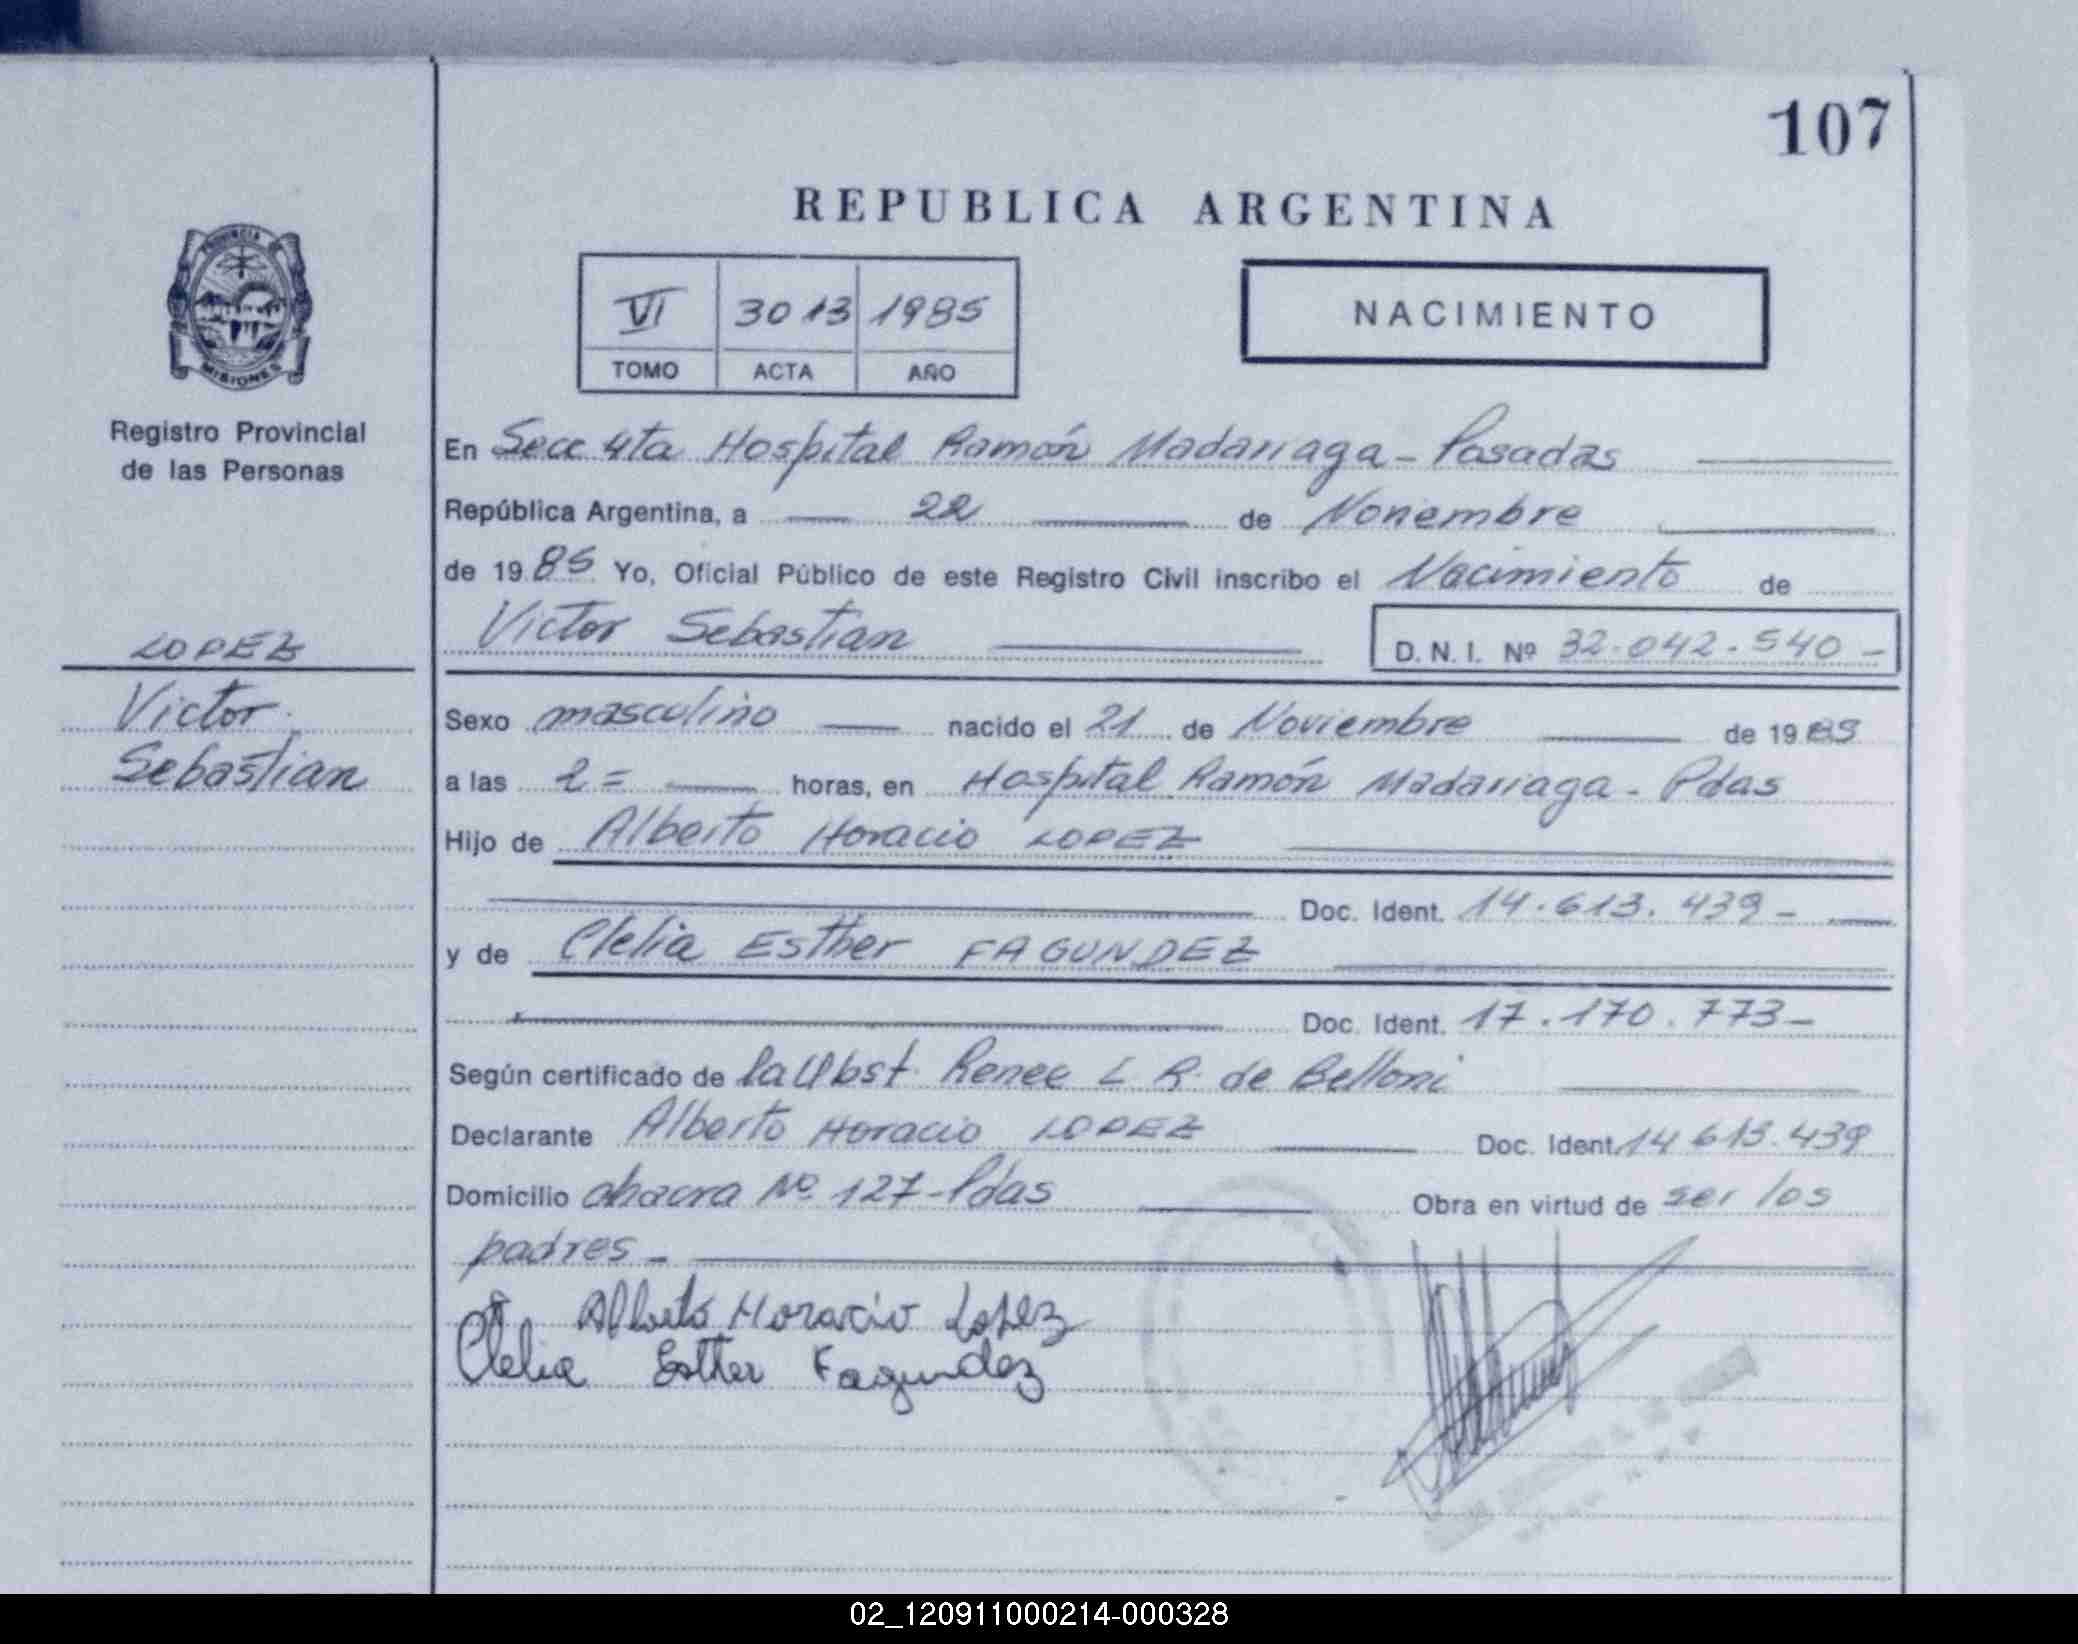 107
REPUBLICA ARGENTINA
PROVINCIA DE
MISIONES
VI 3013 1985
TOMO ACTA AÑO
NACIMIENTO
Registro Provincial
de las Personas
LOPEZ
Victor
Sebastian
En Secc 4ta Hospital Ramón Madariaga - Posadas
República Argentina, a 22 de Noviembre
de 1985 Yo, Oficial Público de este Registro Civil inscribo el Nacimiento de
Victor Sebastian D. N. I. Nº 32.042.540 -
Sexo masculino nacido el 21 de Noviembre de 1985
a las 2 = horas, en Hospital Ramón Madariaga - Pdas
Hijo de Alberto Horacio LOPEZ
Doc. Ident. 14.613.439 -
y de Clelia Esther FAGUNDEZ
Doc. Ident. 17.170.773 -
Según certificado de la Obst. Renee L R. de Belloni
Declarante Alberto Horacio LOPEZ Doc. Ident. 14 613.439
Domicilio chacra Nº 127 - Pdas Obra en virtud de ser los
padres -
Alberto Horacio Lopez
Clelia Esther Fagundez
02_120911000214-000328